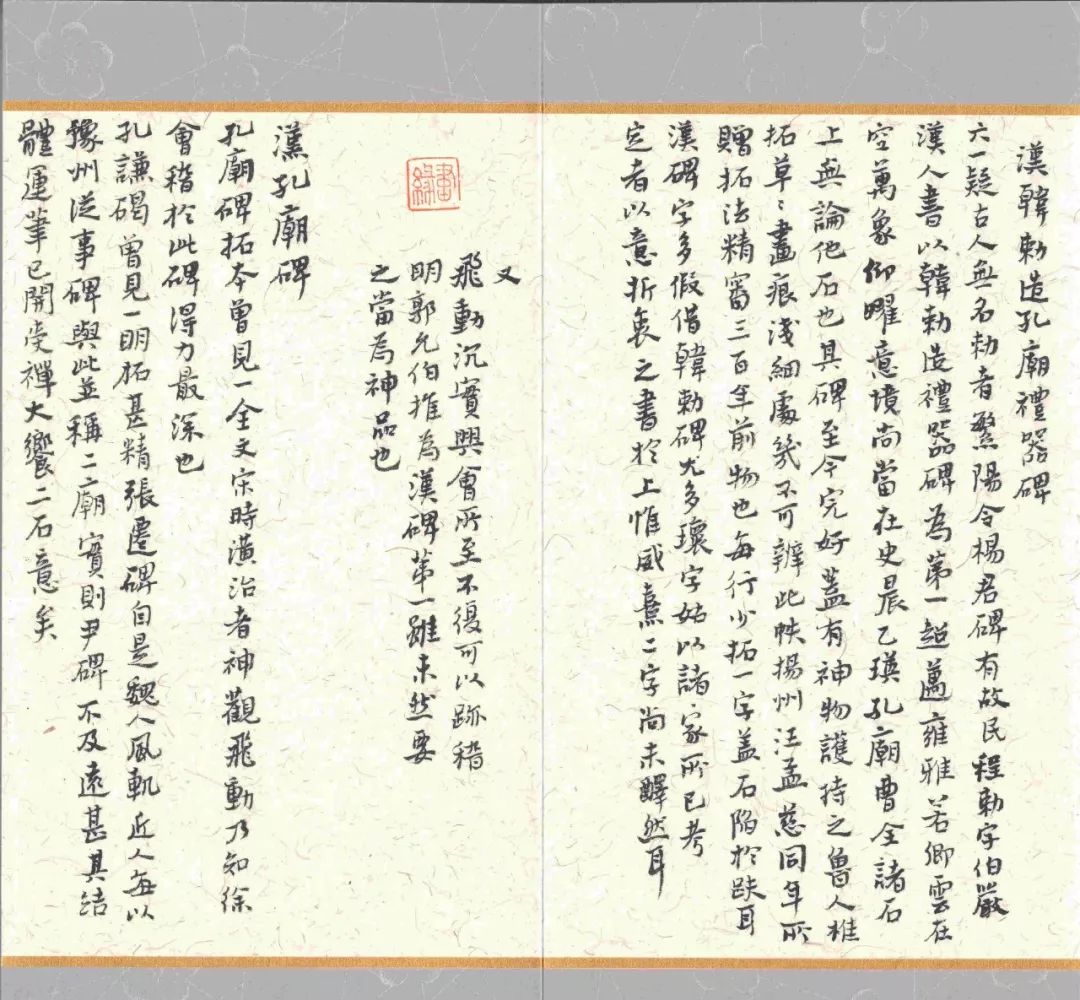 漢韓勅造孔廟禮器碑
六一疑古人無名勅者繁陽令楊君碑有故民程勅字伯嚴
漢人書以韓勅造禮器碑為第一超邁雍雅若卿雲在
空萬象仰曜意境尚當在史晨乙瑛孔廟曹全諸石
上無論他石也其碑至今完好蓋有神物護持之魯人椎
拓草〻畫痕淺細處幾不可辨此帙揚州汪孟慈同年所
贈拓法精審三百年前物也每行少拓一字蓋石陷於趺耳
漢碑字多假借韓勅碑尤多瓌字姑以諸家所已考
定者以意折衷之書於上惟咸熹二字尚未釋然耳
又
飛動沉實興會所至不復可以跡稽
明郭允伯推為漢碑第一雖未然要
之當為神品也
漢孔廟碑
孔廟碑拓本曾見一全文宋時潢治者神觀飛動乃知徐
會稽於此碑得力最深也
孔謙碣曾見一明拓甚精張遷碑自是魏人風軌近人每以
豫州從事碑與此並稱二廟實則尹碑不及遠甚其結
體運筆已開受禪大饗二石意矣